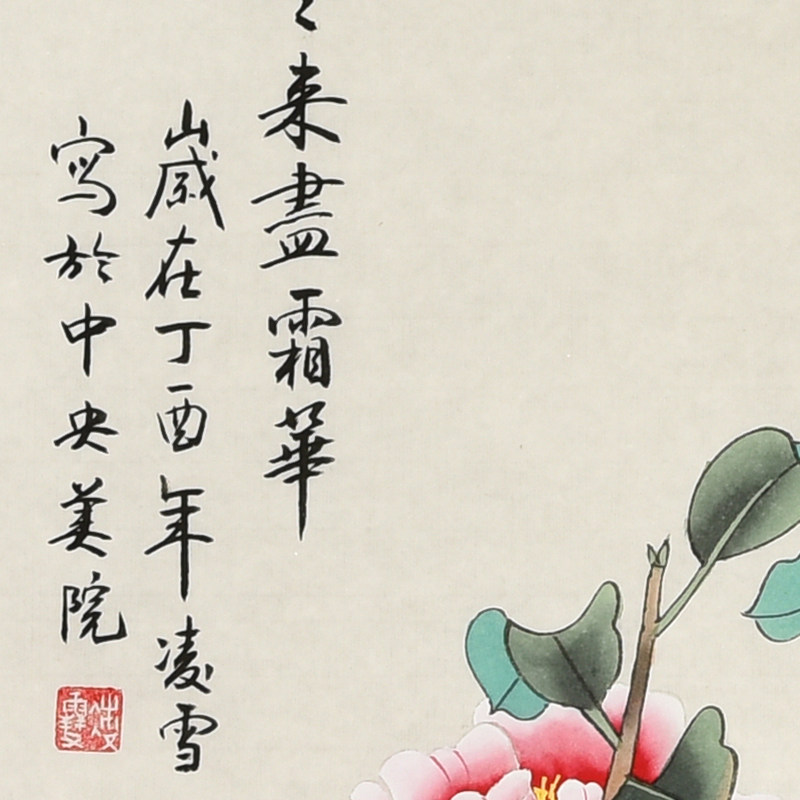 来盡霜華
歲在丁酉年凌雪
寫於中央美院